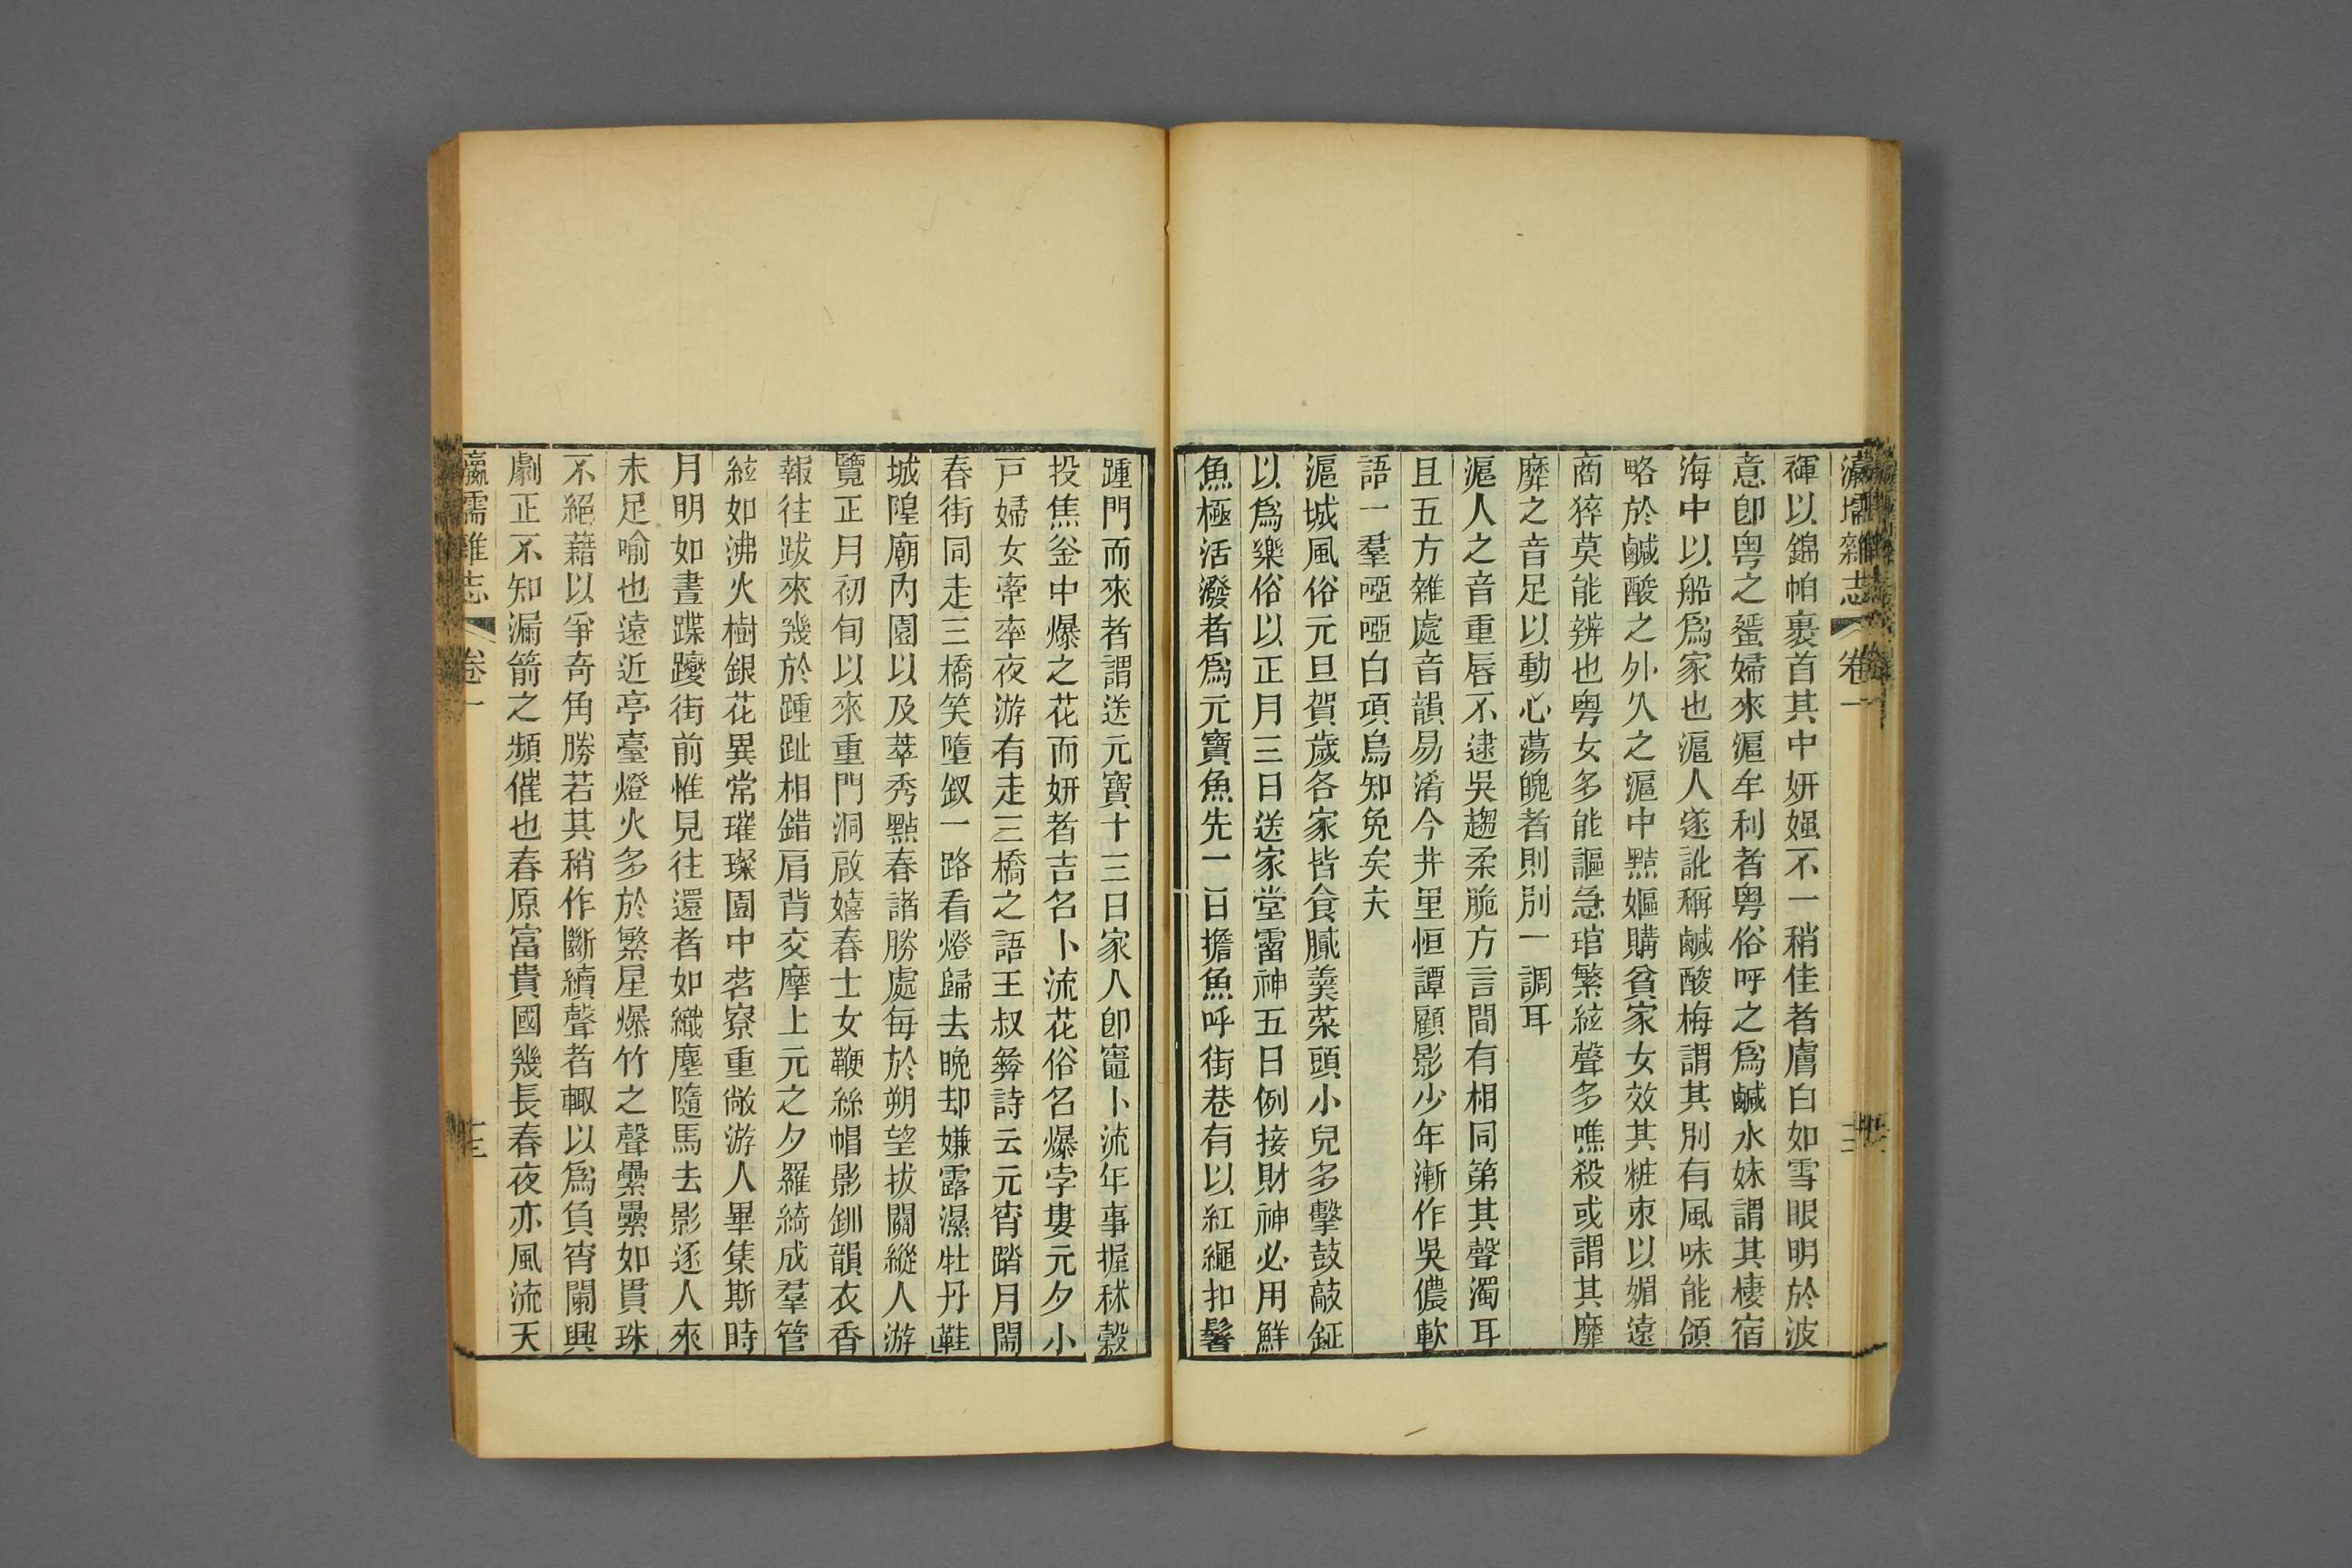 瀛壖雜志 卷一
褌以錦帕裹首其中妍媸不一稍佳者膚白如雪眼明於波
意卽粵之蜑婦來滬牟利者粵俗呼之爲鹹水妹謂其棲宿
海中以船爲家也滬人遂訛稱鹹酸梅謂其別有風味能領
略於鹹酸之外久之滬中黠嫗購貧家女效其粧束以媚遠
商猝莫能辨也粵女多能謳急琯繁絃聲多噍殺或謂其靡
靡之音足以動心蕩魄者則別一調耳
滬人之音重唇不逮吳趨柔脆方言間有相同第其聲濁耳
且五方雜處音韻易淆今井里恒譚顧影少年漸作吳儂軟
語一羣啞啞白項烏知免矣夫
滬城風俗元旦賀歲各家皆食膩羹菜頭小兒多擊鼓敲鉦
以爲樂俗以正月三日送家堂霤神五日例接財神必用鮮
魚極活潑者爲元寶魚先一日擔魚呼街巷有以紅繩扣鬐
踵門而來者謂送元寶十三日家人卽竈卜流年事握秫穀
投焦釜中爆之花而妍者吉名卜流花俗名爆孛婁元夕小
戸婦女牽率夜游有走三橋之語王叔彜詩云元宵踏月鬧
春街同走三橋笑墮釵一路看燈歸去晚却嫌露濕牡丹鞵
城隍廟內園以及萃秀點春諸勝處每於朔望拔關縱人游
覽正月初旬以來重門洞啟嬉春士女鞭絲帽影釧韻衣香
報往跋來幾於踵趾相錯肩背交摩上元之夕羅綺成羣管
絃如沸火樹銀花異常璀璨園中茗寮重敞游人畢集斯時
月明如晝蹀躞街前惟見往還者如織塵隨馬去影逐人來
未足喻也遠近亭臺燈火多於繁星爆竹之聲纍纍如貫珠
不絕藉以爭奇角勝若其稍作斷續聲者輒以爲負宵闌興
劇正不知漏箭之頻催也春原富貴國幾長春夜亦風流天
瀛壖雜志 卷一 十三